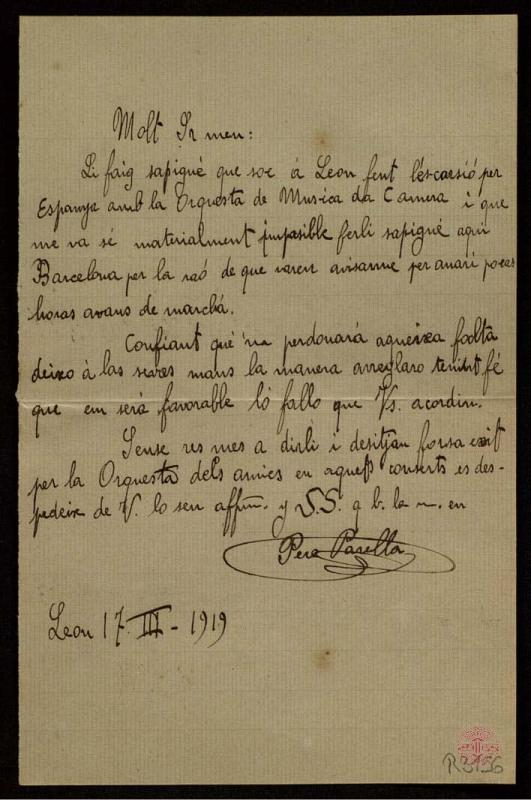 Molt Sr meu:
Li faig sapigué que soc á Leon fent l'escursió per
Espanya amb la Orquesta de Musica da Camera i que
me va sé materialment impasible ferli sapigué aqui
Barcelona per la raó de que varen avisarme per anari poeas
horas avans de marchá.
Confiant qué 'm perdonará aqueixa faolta
deixo á las seves mans la manera arreglaro tenint fé
que em será favorable ló fallo que Vs. acordin.
Sense res mes a dirli i desitjan forsa exit
per la Orquesta dels amics en aquets conserts es des-
pedeix de V. lo seu affm. y S.S. q b. la m. en
Pere Parella
Leon 17-III-1919
R3156